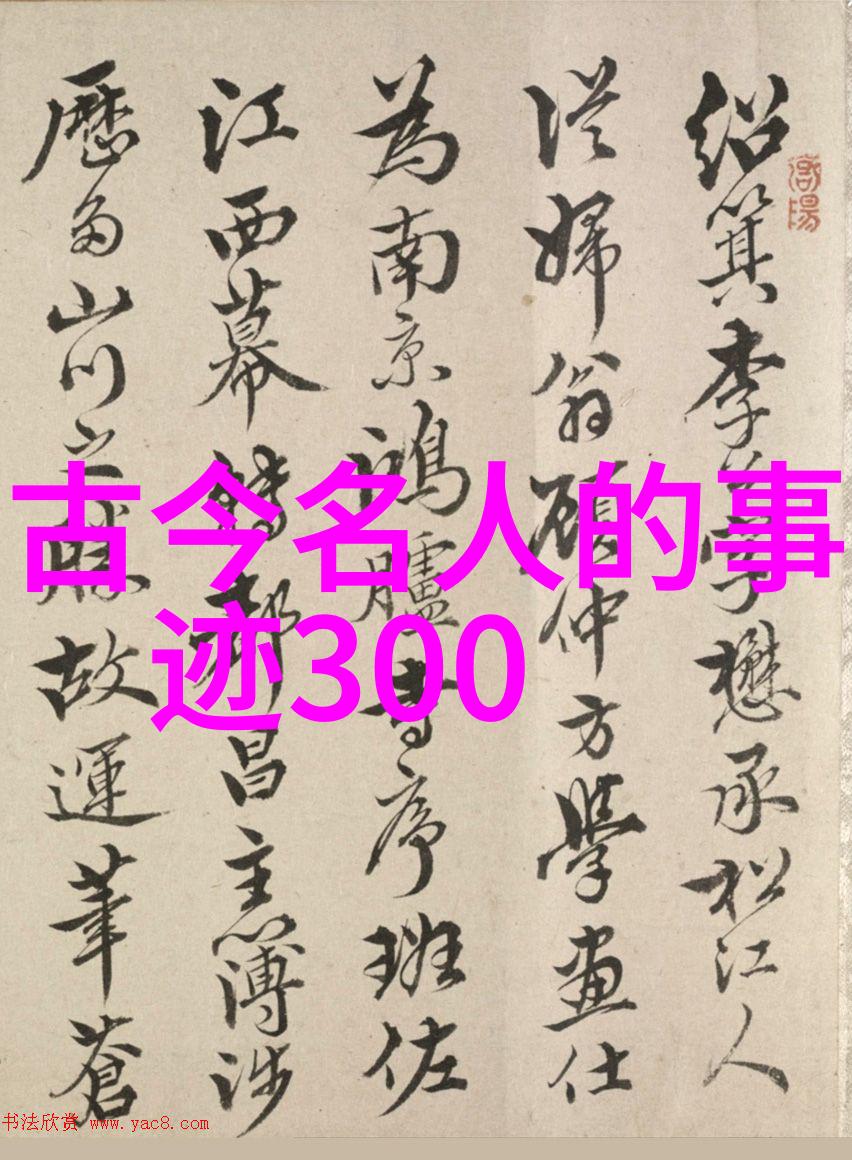 紹箕李著字懋承松江人
從婦翁顧仲方學畫仕
為南京鴻臚寺序班佐
江西幕轉都昌主簿涉
歷多山川之勝故運筆蒼
古今名人的事
迹300
书法欣赏 www.yac8.com